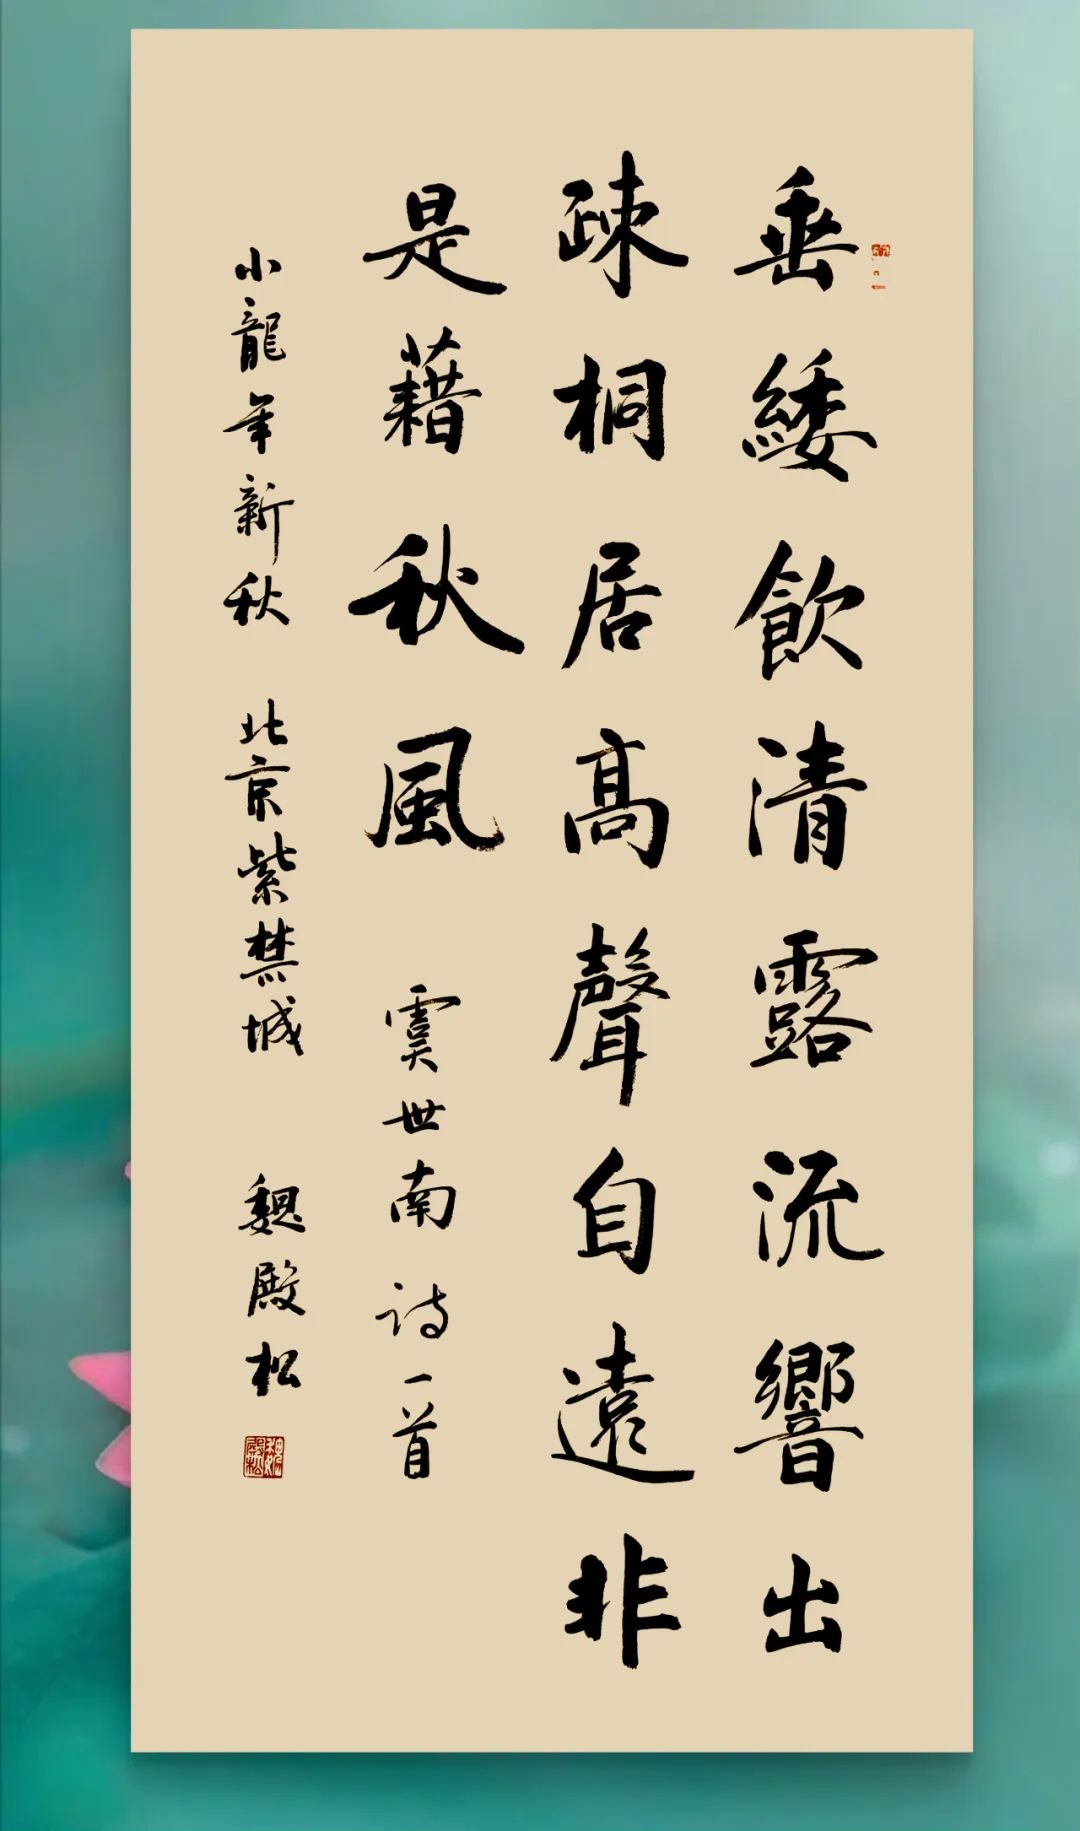 垂緌飲清露流響出
疎桐居高聲自遠非
是藉秋風 虞世南詩一首
小龍年新秋 北京紫禁城 魏殿松
魏殿松